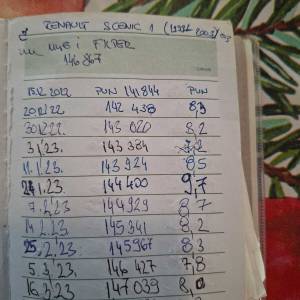 RENAULT SCENIC 1
146 867
15.12.2022 PUN 141844 PUN
20.12.22 142 438 8,3
30.12.22. 143 020 8,2
3.1.23. 143 384
11.1.23. 143 924 8,5
24.1.23. 144 400 9,7
7.2.23 144 929 8,7
14.2.23 145 341 8,2
25.2.23. 145967 8,3
5.3.23. 146 427 7,8
16.3.23 147 039 8,0